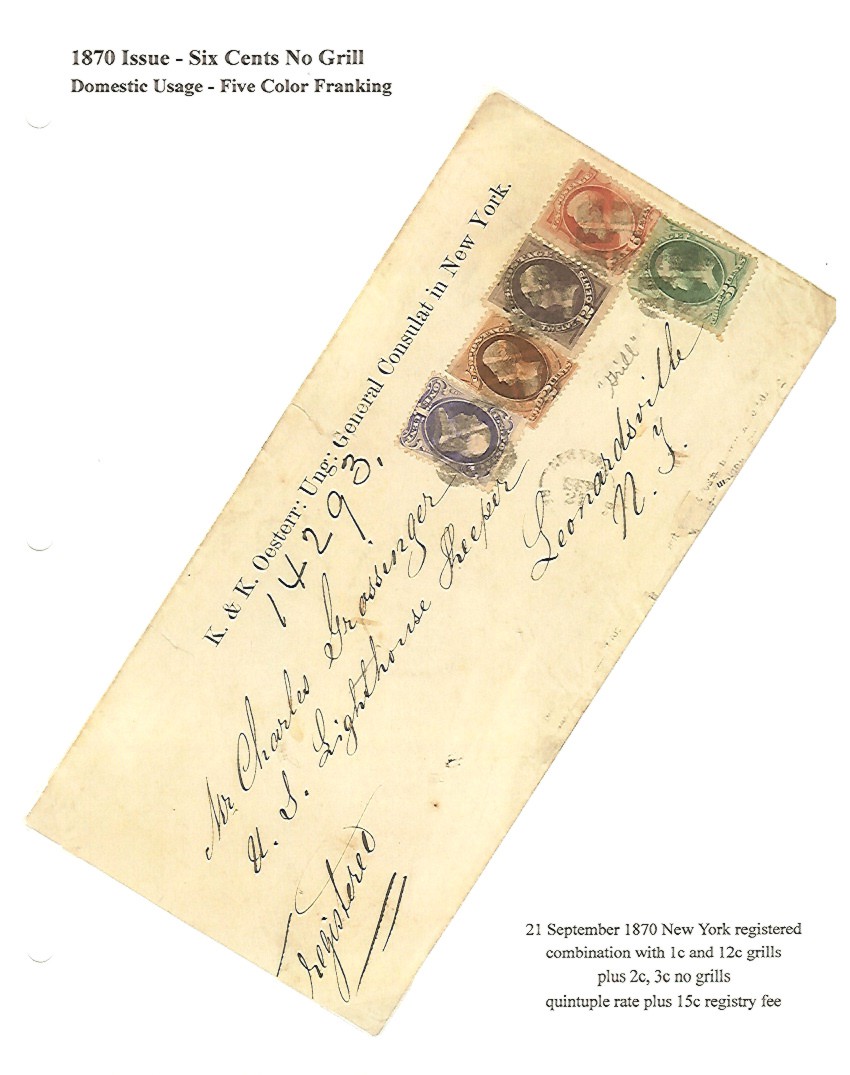 1870 Issue - Six Cents No Grill
Domestic Usage - Five Color Franking
K. & K. Oesterr: Ung: General Consulat in New York.
14293.
"Grill"
Mr Charles Grassinger
U. S. Lighthouse Keeper
Leonardsville
N. Y.
registered
21 September 1870 New York registered
combination with 1c and 12c grills
plus 2c, 3c no grills
quintuple rate plus 15c registry fee